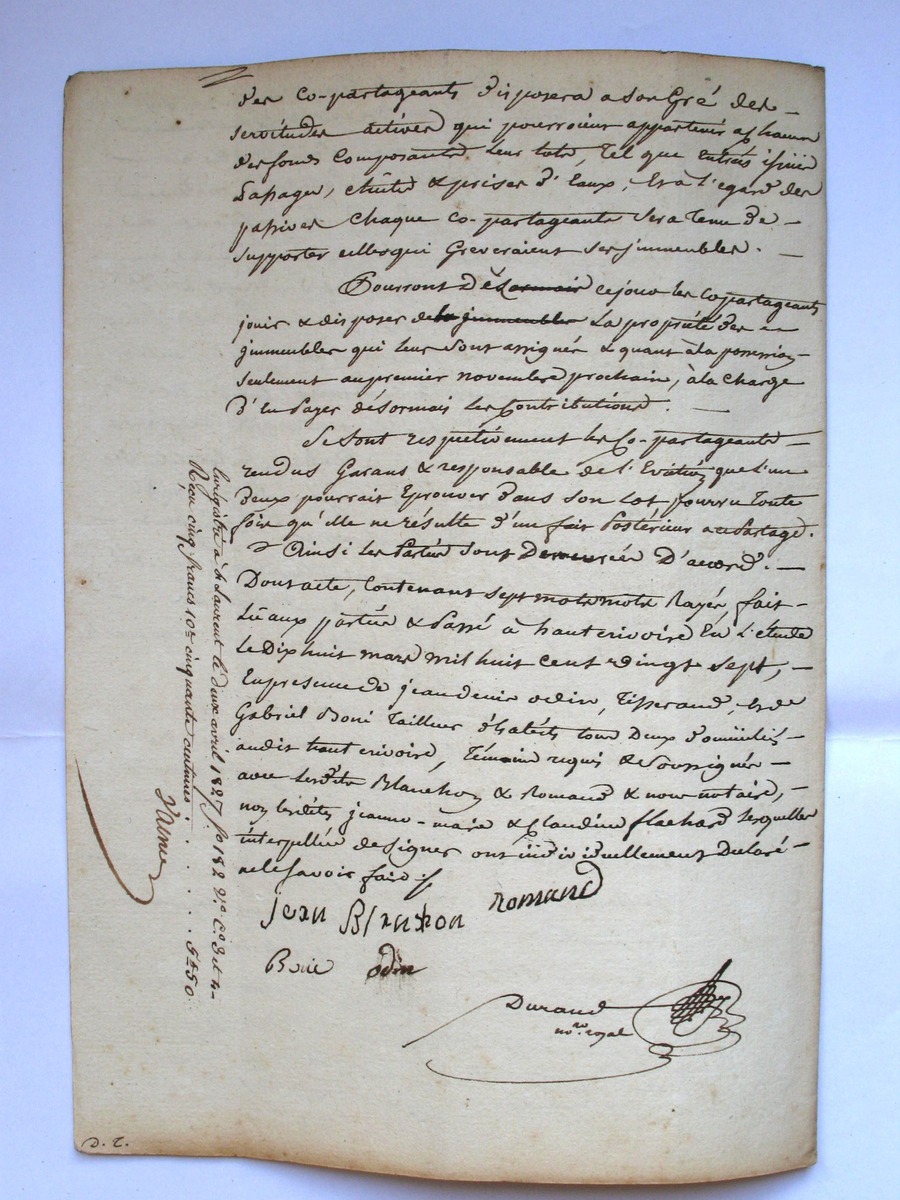 des co-partageants disposera a son Gré des
servitudes actives qui pourroient appartenir a chacun
des fonds Composants Leur lots, Tel que entrées issüe
Passager, chûtes & prises d'Eaux, Et a l'egard des
passives Chaque Co-partageante Sera Tenu de
supporter celles qui Greveraient ses jmmeubles.
Pourront Dès Lormais ce jour les Copartageants
jouir & disposer de les jmmeubles La propriété des
jmmeubles qui leur Sont assignés & quant à la possession
Seulement au premier novembre prochain, à la Charge
d'En Payer désormais les Contributions.
Se Sont respectivement les Co-partageants
rendus Garans & responsable de l'Eviction que l'un
deux pourrait Eprouver dans Son Lot, pourvu Toute
fois qu'elle ne résulte d'un fait Postérieur au Partage.
Ainsi les Parties Sont Demeurées D'accord.
Dont acte, Contenant Sept mots mots Rayés, fait
Lû aux parties & Passé à hauterivoire En L'étude
Le Dix huit mars mil huit cent vingt Sept,
En presence de jean denis odin, Tisserand, et de
Gabriel Boni Tailleur d'habits tous Deux domiciliés
audit hauterivoire, Témoins requis & Soussignés
avec lesdits Blanchon & Romand & nous notaire,
non lesdites jeanne-marie & Claudine flachard lesquelles
interpellées de signer ont individuellement Déclaré
ne le Savoir faire
jean Blanchon romand
Boni odin
Durand
nore. royal
Enrégistré à St Laurent le deux avril 1827 fo 182 vo Co 3 et 4
Reçu cinq francs 10e cinquante centimes . . . . . 5f50
D. T.